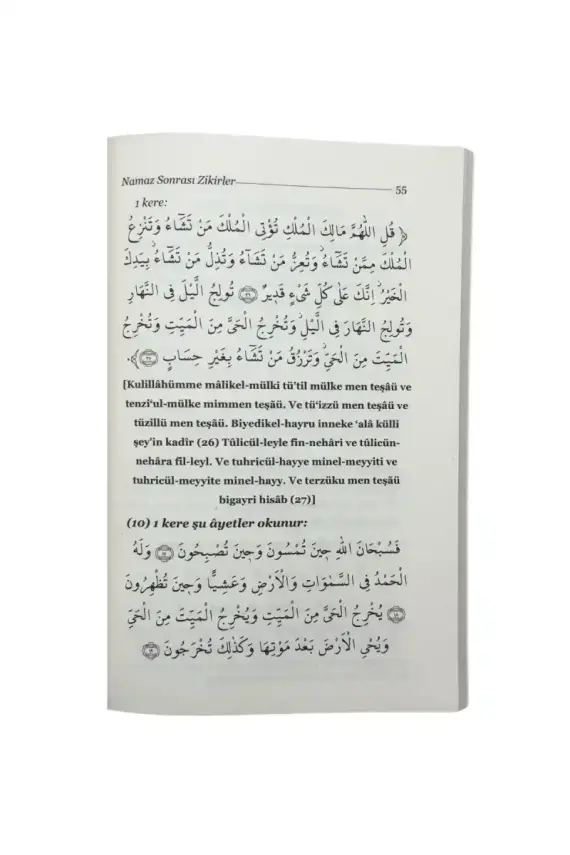 Namaz Sonrası Zikirler
55
1 kere:
﴿ قُلِ اللّٰهُمَّ مَالِكَ الْمُلْكِ تُؤْتِي الْمُلْكَ مَنْ تَشَٓاءُ وَتَنْزِعُ
الْمُلْكَ مِمَّنْ تَشَٓاءُۘ وَتُعِزُّ مَنْ تَشَٓاءُ وَتُذِلُّ مَنْ تَشَٓاءُۜ بِيَدِكَ
الْخَيْرُۜ اِنَّكَ عَلٰى كُلِّ شَيْءٍ قَد۪يرٌ ﴿٢٦﴾ تُولِجُ الَّيْلَ فِي النَّهَارِ
وَتُولِجُ النَّهَارَ فِي الَّيْلِۘ وَتُخْرِجُ الْحَيَّ مِنَ الْمَيِّتِ وَتُخْرِجُ
الْمَيِّتَ مِنَ الْحَيِّۘ وَتَرْزُقُ مَنْ تَشَٓاءُ بِغَيْرِ حِسَابٍ ﴿٢٧﴾ ﴾.
[Kulillâhümme mâlikel-mülki tü'til mülke men teşâü ve
tenzi‘ul-mülke mimmen teşâü. Ve tü‘izzü men teşâü ve
tüzillü men teşâü. Biyedikel-hayru inneke ‘alâ külli
şey'in kadîr (26) Tûlicül-leyle fin-nehâri ve tûlicün-
nehâra fil-leyl. Ve tuhricül-hayye minel-meyyiti ve
tuhricül-meyyite minel-hayy. Ve terzüku men teşâü
bigayri hisâb (27)]
(10) 1 kere şu âyetler okunur:
فَسُبْحَانَ اللّٰهِ ح۪ينَ تُمْسُونَ وَح۪ينَ تُصْبِحُونَ ﴿١٧﴾ وَلَهُ
الْحَمْدُ فِي السَّمٰوَاتِ وَالْاَرْضِ وَعَشِيًّا وَح۪ينَ تُظْهِرُونَ
﴿١٨﴾ يُخْرِجُ الْحَيَّ مِنَ الْمَيِّتِ وَيُخْرِجُ الْمَيِّتَ مِنَ الْحَيِّ
وَيُحْيِ الْاَرْضَ بَعْدَ مَوْتِهَا وَكَذٰلِكَ تُخْرَجُونَ ﴿١٩﴾